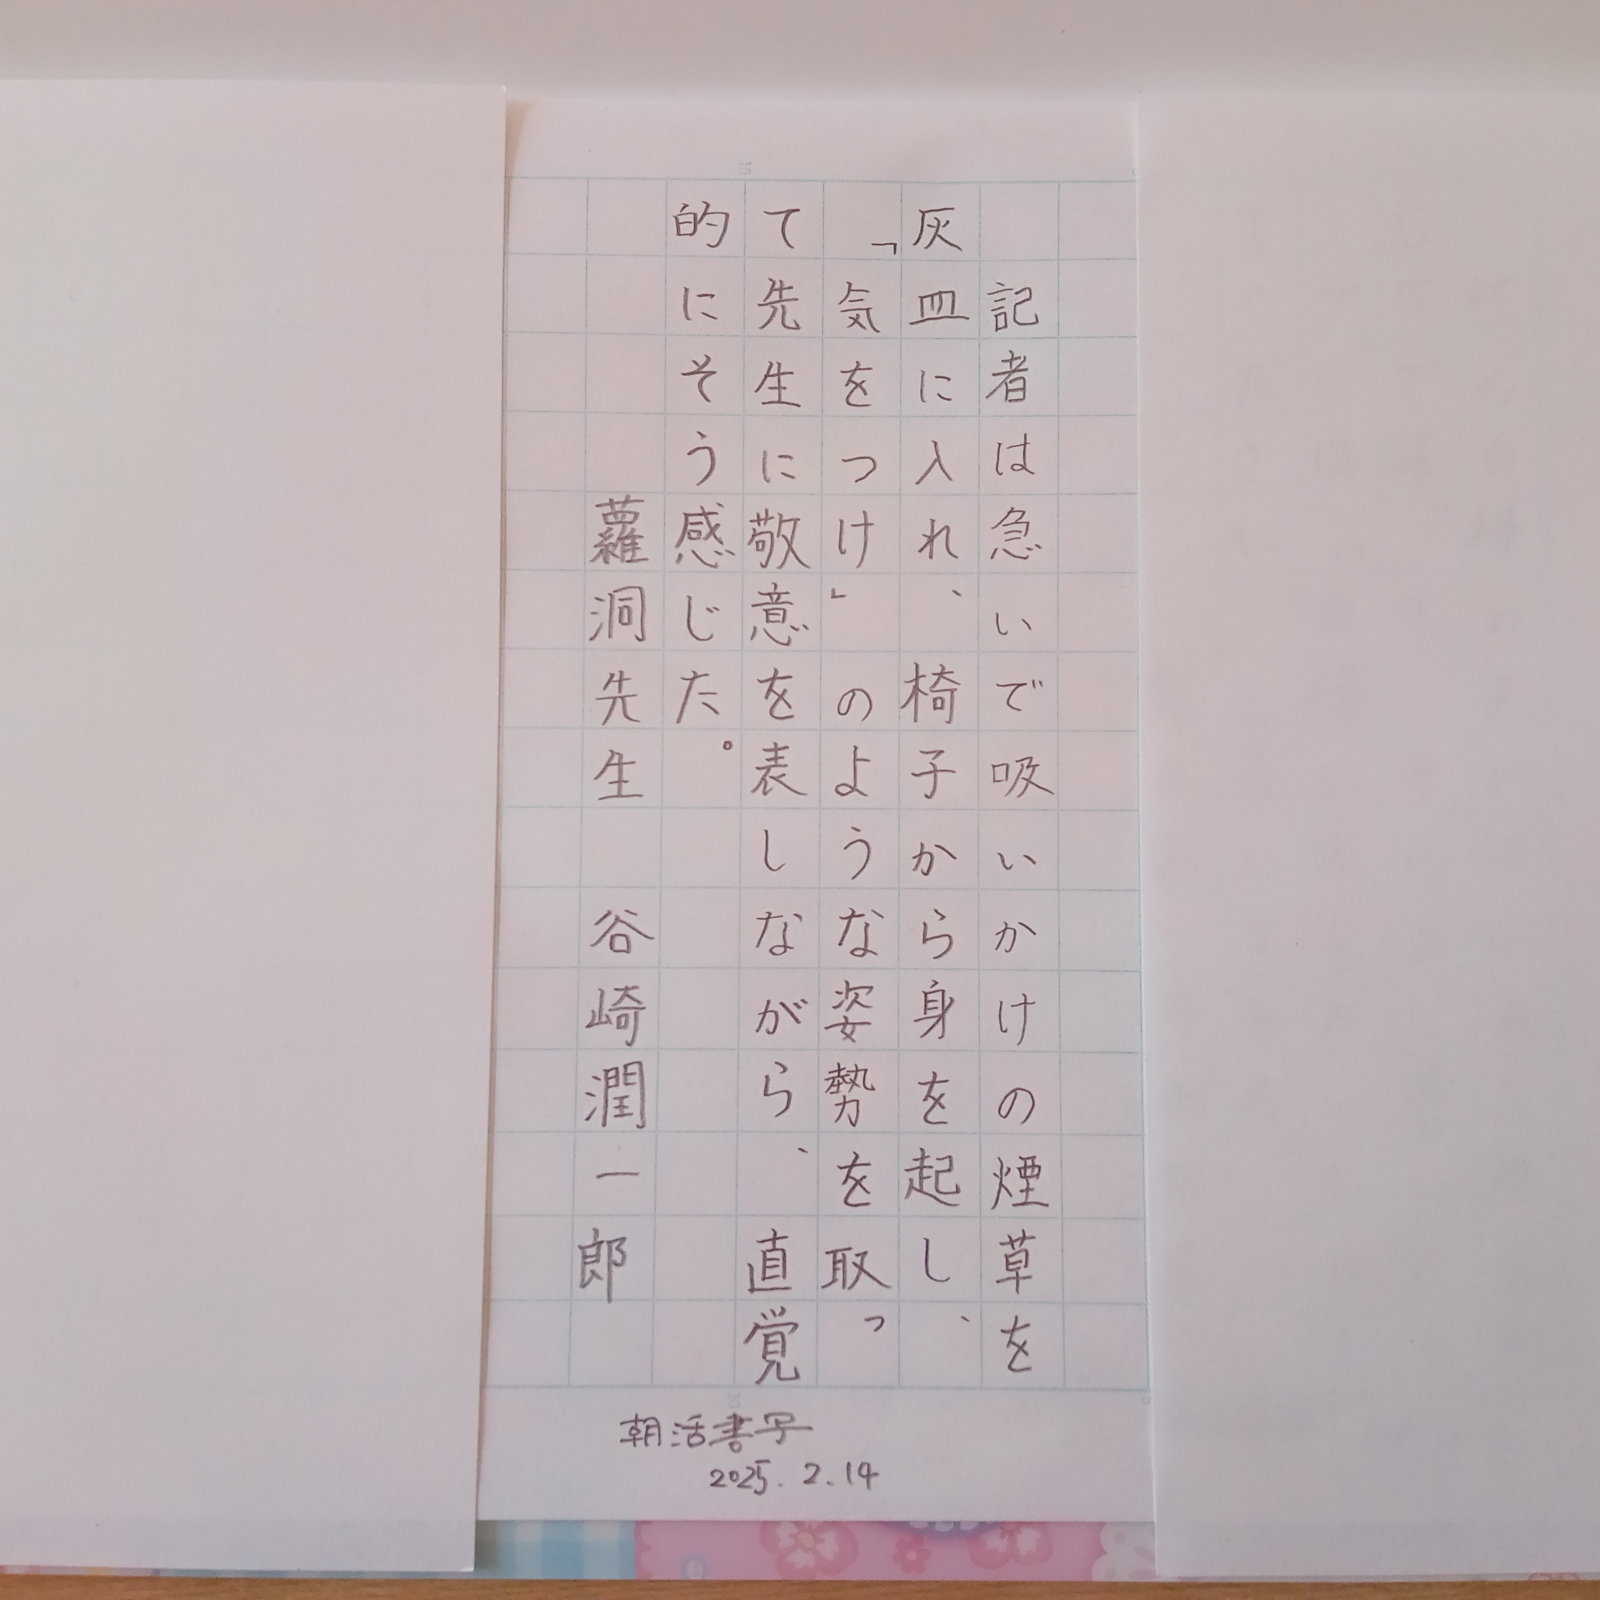 記者は急いで吸いかけの煙草を
灰皿に入れ、椅子から身を起し、
「気をつけ」のような姿勢を取っ
て先生に敬意を表しながら、直覚
的にそう感じた。
蘿洞先生 谷崎潤一郎
朝活書写
2025.2.14